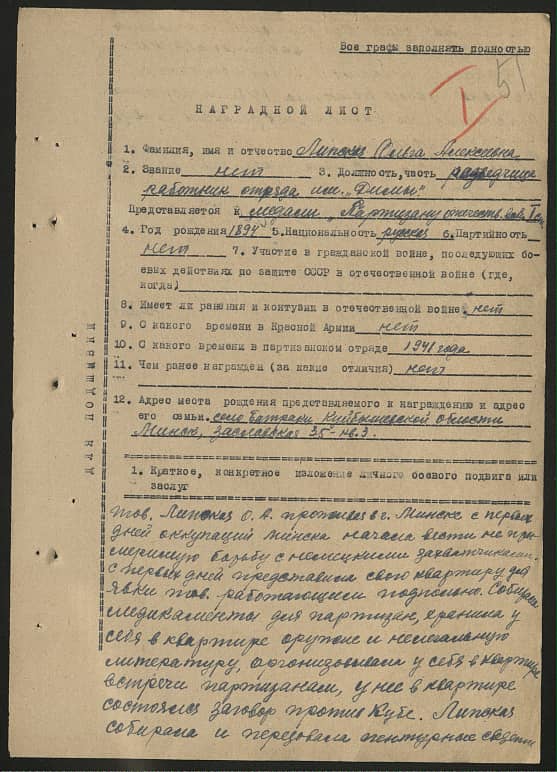 Все графы заполнять полностью
I
51
НАГРАДНОЙ ЛИСТ
1. Фамилия, имя и отчество Липская Ольга Алексеевна
2. Звание нет 3. Должность, часть разведчица
работник отряда им. "Димы"
Представляется к медали "Партизану отечеств. войны" I ст.
4. Год рождения 1894 5. Национальность русская 6. Партийность
нет 7. Участие в гражданской войне, последующих бо-
евых действиях по защите СССР в отечественной войне (где,
когда)
8. Имеет ли ранения и контузии в отечественной войне. нет
9. С какого времени в Красной Армии нет
10. С какого времени в партизанском отряде 1941 года
11. Чем ранее награжден (за какие отличия) нет
12. Адрес места рождения представляемого к награждению и адрес
его семьи. село Батраки Куйбышевской области
Минск, Заславская 35 - кв. 3.
ДЛЯ ПОДШИВКИ
1. Краткое, конкретное изложение личного боевого подвига или
заслуг
тов. Липская О. А. проживая в г. Минске с первых
дней оккупации Минска начала вести не при-
меримую борьбу с немецкими захватчиками.
с первых дней представила свою квартиру для
явки тов. работающим подпольно. Собирала
медикаменты для партизан, хранила у
себя в квартире оружие и нелегальную
литературу, организовывала у себя в квартире
встречи партизанам, у нее в квартире
состоялся заговор против Кубе. Липская
собирала и передовала агентурные сведен